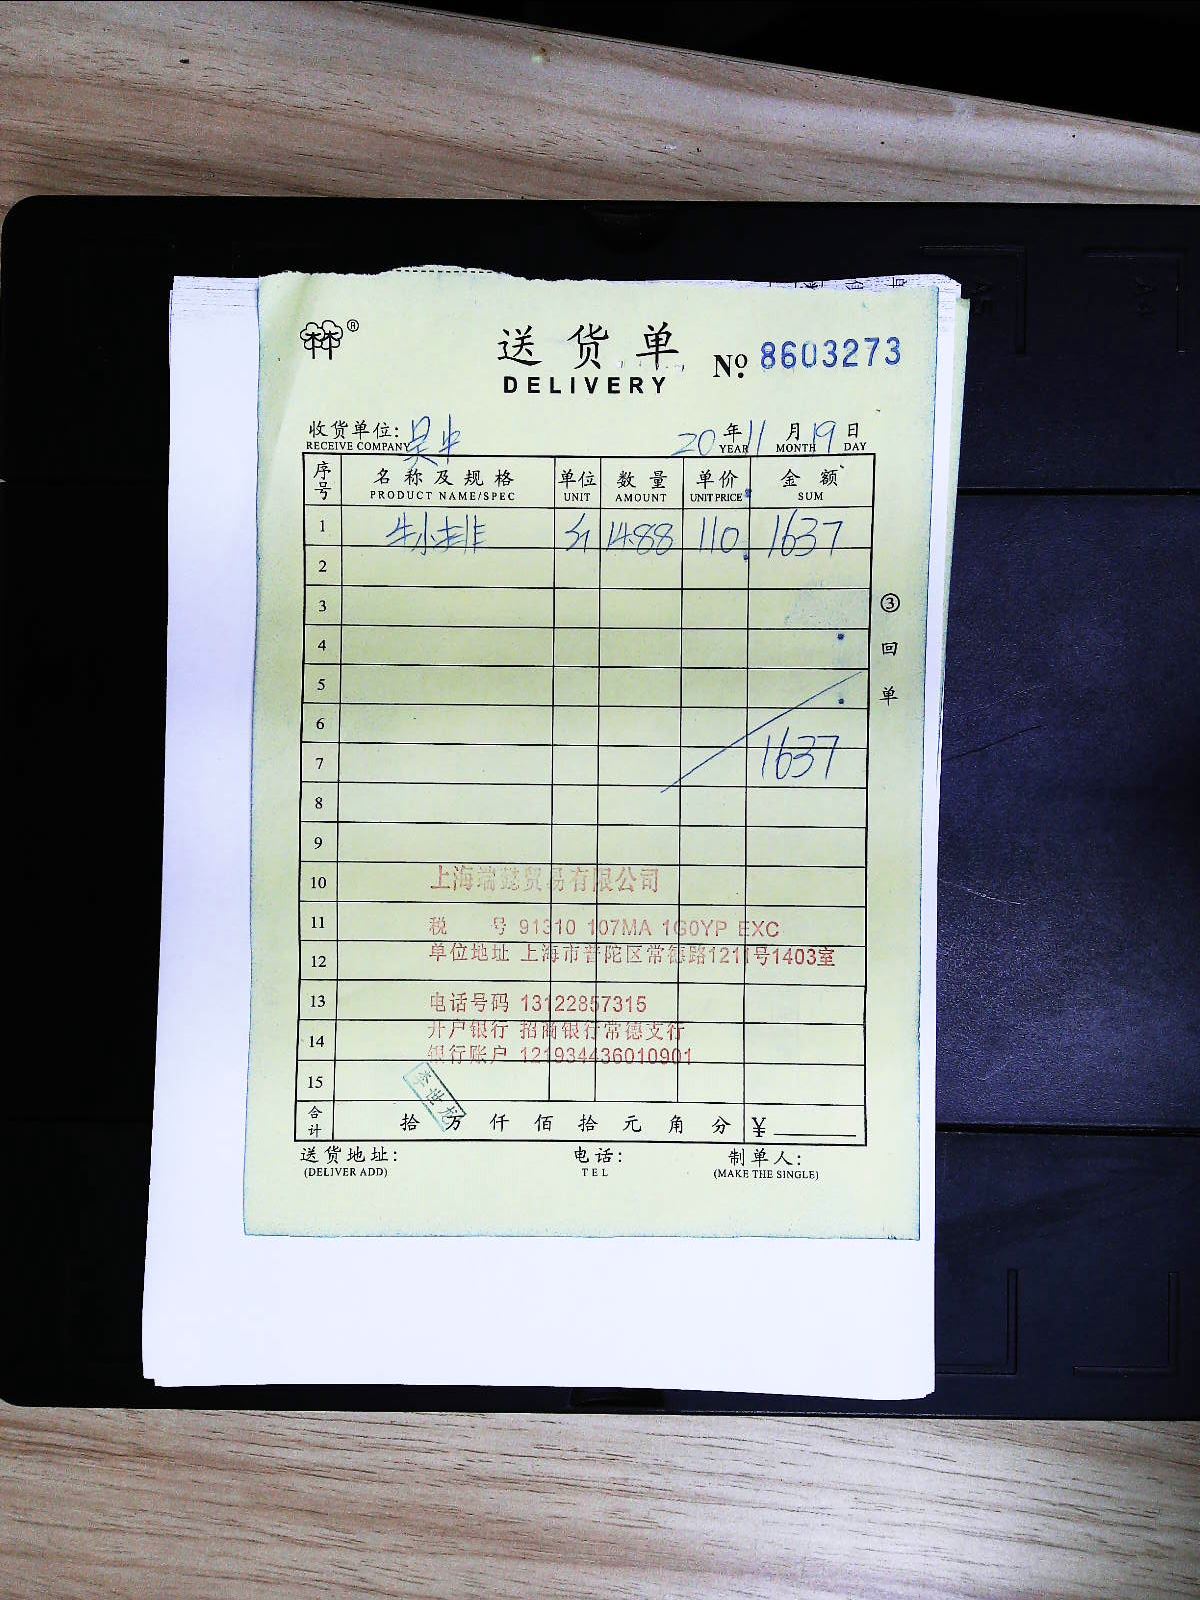 ®
送货单 Nº 8603273
DELIVERY
收货单位: 吴中 20年11月19日
RECEIVE COMPANY YEAR MONTH DAY
序号 名称及规格 单位 数量 单价 金额
PRODUCT NAME/SPEC UNIT AMOUNT UNIT PRICE SUM
1 牛小排 斤 14.88 110 1637
2
3
4
5
6
7 1637
8
9
10 上海端懿贸易有限公司
11 税号 91310 107MA 1G0YP EXC
12 单位地址 上海市普陀区常德路1211号1403室
13 电话号码 13122857315
14 开户银行 招商银行常德支行
银行账户 121934436010901
15
李世龙
合计 拾万仟佰拾元角分 ¥
送货地址: 电话: 制单人:
(DELIVER ADD) TEL (MAKE THE SINGLE)
③回单